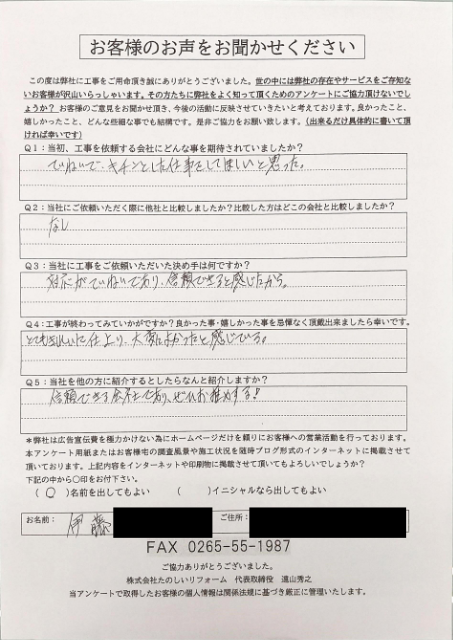 お客様のお声をお聞かせください
この度は弊社に工事をご用命頂き誠にありがとうございました。世の中には弊社の存在やサービスをご存知ない
お客様が沢山いらっしゃいます。その方たちに弊社をよく知って頂くためのアンケートにご協力頂けないで
しょうか? お客様のご意見をお聞かせ頂き、今後の活動に反映させていきたいと考えております。良かったこと、
嬉しかったこと、どんな些細な事でも結構です。是非ご協力をお願い致します。(出来るだけ具体的に書いて頂
ければ幸いです)
Q1:当初、工事を依頼する会社にどんな事を期待されていましたか?
ていねいで、キチンとした仕事をしてほしいと思った。
Q2:当社にご依頼いただく際に他社と比較しましたか?比較した方はどこの会社と比較しましたか?
なし
Q3:当社に工事をご依頼いただいた決め手は何ですか?
対応がていねいであり、信頼できると感じたから。
Q4:工事が終わってみていかがですか?良かった事・嬉しかった事を忌憚なく頂戴出来ましたら幸いです。
とてもきれいな仕上り、大変よかったと感じている。
Q5:当社を他の方に紹介するとしたらなんと紹介しますか?
信頼できる会社であり、ぜひお薦めする!
*弊社は広告宣伝費を極力かけない為にホームページだけを頼りにお客様への営業活動を行っております。
本アンケート用紙またはお客様宅の調査風景や施工状況を随時ブログ形式のインターネットに掲載させて
頂いております。上記内容をインターネットや印刷物に掲載させて頂いてもよろしいでしょうか?
下記の中から○印をお付下さい。
(○)名前を出してもよい ( )イニシャルなら出してもよい
お名前: 伊藤 ご住所:
FAX 0265-55-1987
ご協力ありがとうございました。
株式会社たのしいリフォーム 代表取締役 遠山秀之
当アンケートで取得したお客様の個人情報は関係法規に基づき厳正に管理いたします。